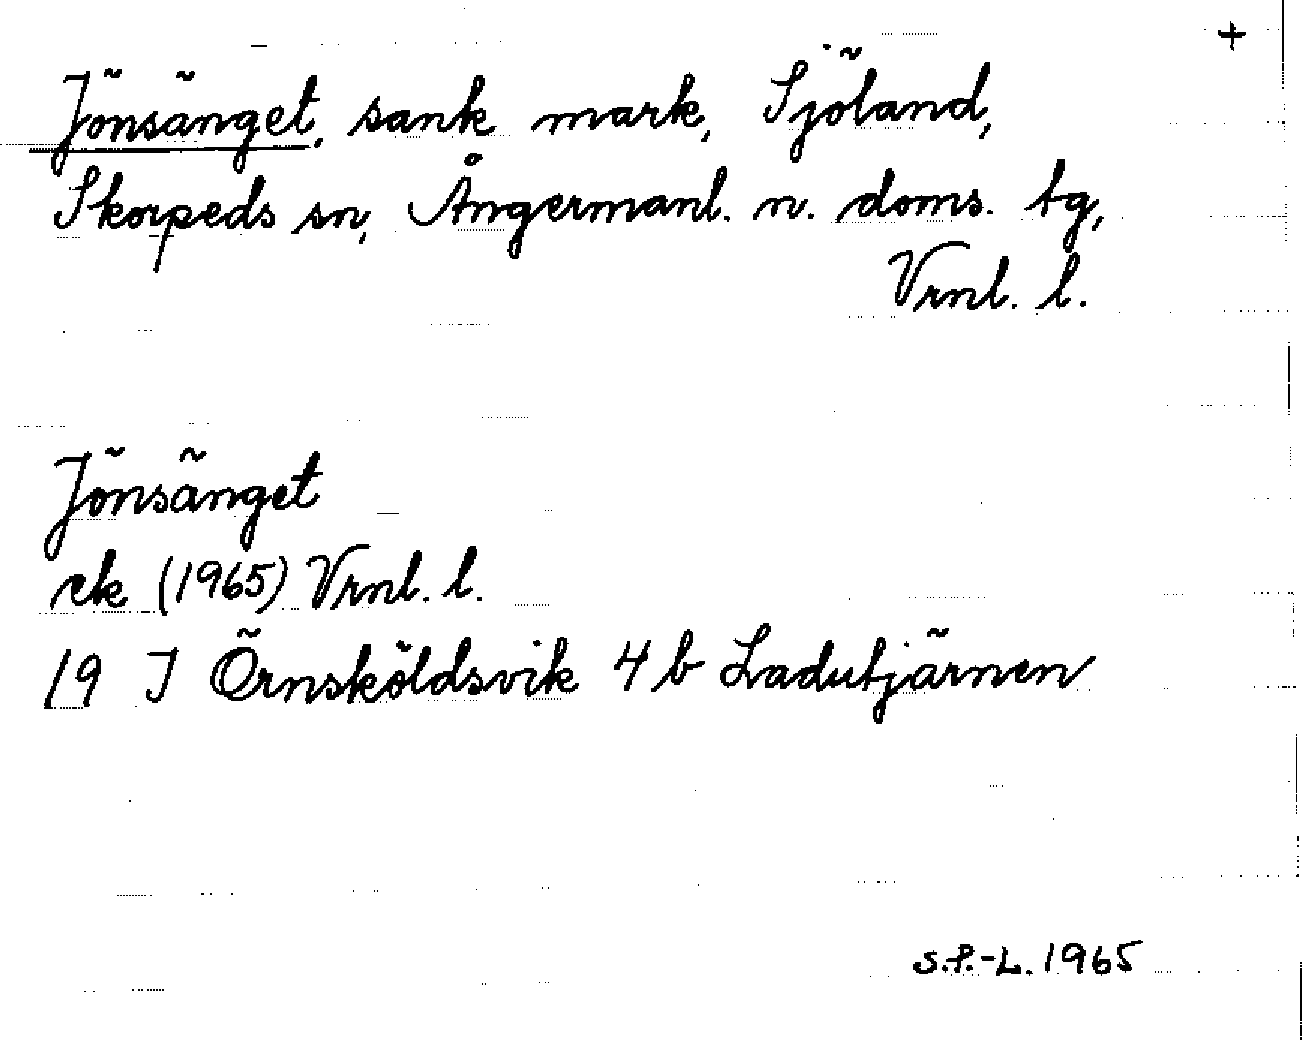 +
Jönsänget, sank mark, Sjöland,
Skorpeds sn, Ångermanl. n. doms. tg,
Vrnl. l.
Jönsänget
ek (1965) Vrnl. l.
19 J Örnsköldsvik 4 b Ladutjärnen
S.P.-L. 1965